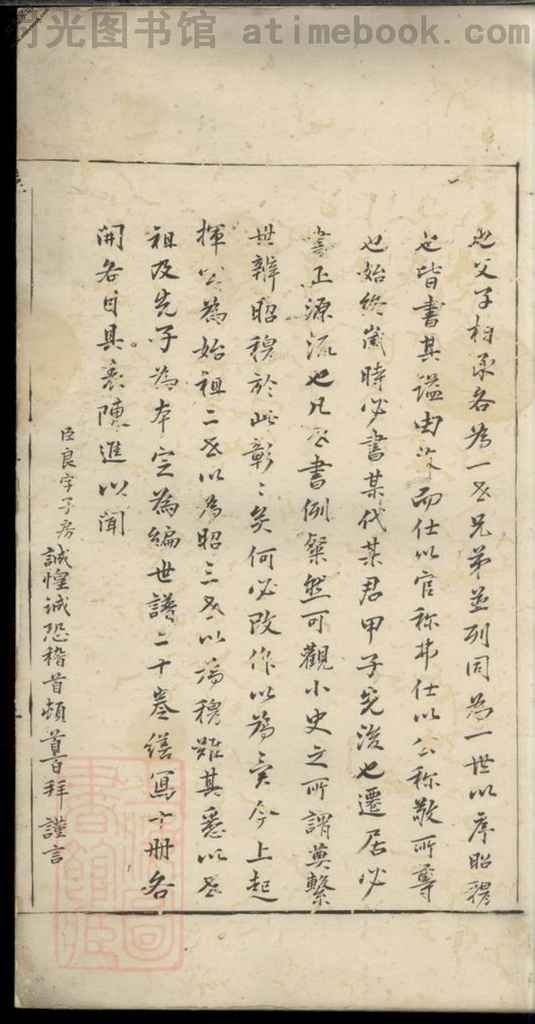 时光图书馆 atimebook.com
也父子相承各為一世兄弟並列同為一世以序昭穆
也皆書其諡由 而仕以官称弗仕以公称敬所尊
也始終歲時必書某代某君甲子先後也遷居必
書正源流也凡此書例粲然可觀小史之所謂奠繫
世辨昭穆於此彰〻矣何必改作以為 今上起
揮公為始祖二世以為昭三世以為穆雖其悉以世
祖及先子為本定為編世譜二十卷繕寫十冊各
開各目具表陳進以聞
臣良字子房誠惶誠恐稽首頓首百拜謹言